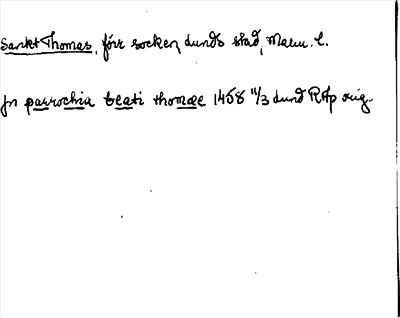 Sankt Thomas, förr socken, Lunds stad, Malm. l.
jn parrochia beati thomae 1458 11/3 Lund RAp orig.